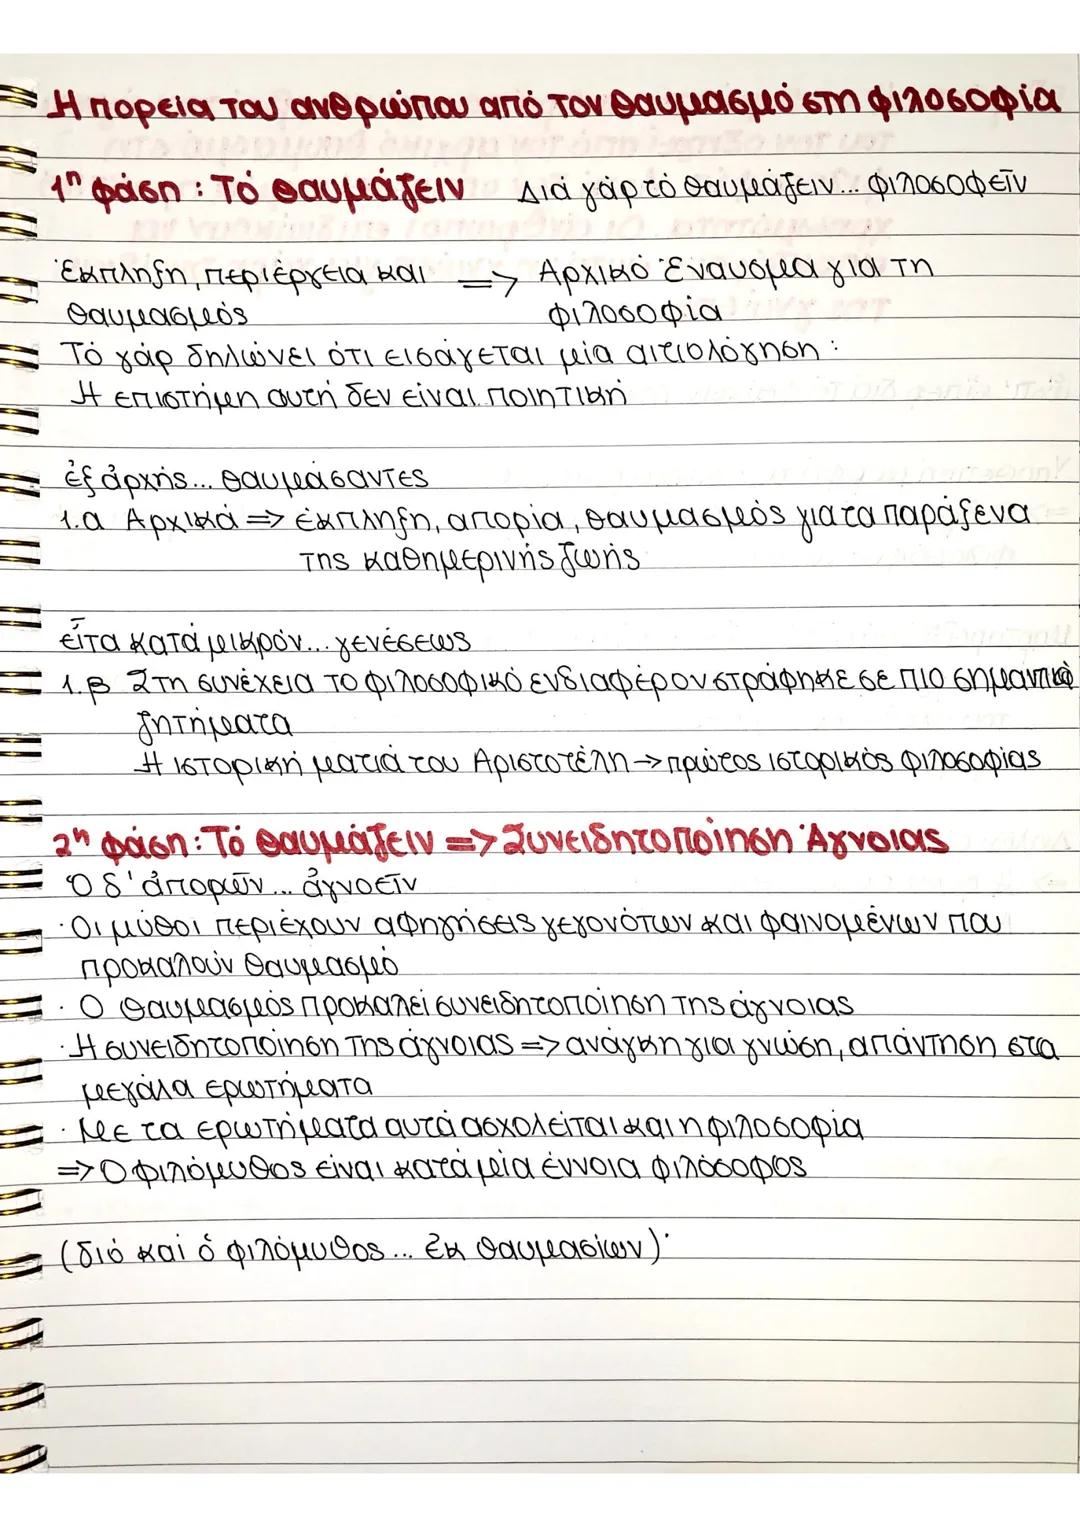 Η πορεία του ανθρώπου από τον θαυμασμό στη φιλοσοφία
1η φάση : Τό θαυμάζειν Διά γάρ τό θαυμάζειν... φιλοσοφεῖν
Έκπληξη, περιέργεια και => Αρχικό Έναυσμα για τη
θαυμασμός φιλοσοφία
Τό γάρ δηλώνει ότι εισάγεται μία αιτιολόγηση :
Η επιστήμη αυτή δεν είναι ποιητική
ἐξ ἀρχής... θαυμάσαντες
1.α Αρχικά => έκπληξη, απορία, θαυμασμός για τα παράξενα
της καθημερινής ζωής
εἶτα κατά μικρόν... γενέσεως
1.β Στη συνέχεια το φιλοσοφικό ενδιαφέρον στράφηκε σε πιο σημαντικά
ζητήματα
Η ιστορική ματιά του Αριστοτέλη → πρώτος ιστορικός φιλοσοφίας
2η φάση : Τό θαυμάζειν => Συνειδητοποίηση Άγνοιας
Ὁ δ' ἀπορῶν ... ἀγνοεῖν
· Οι μύθοι περιέχουν αφηγήσεις γεγονότων και φαινομένων που
προκαλούν θαυμασμό
· Ο θαυμασμός προκαλεί συνειδητοποίηση της άγνοιας
· Η συνειδητοποίηση της άγνοιας => ανάγκη για γνώση, απάντηση στα
μεγάλα ερωτήματα
· Με τα ερωτήματα αυτά ασχολείται και η φιλοσοφία
=> Ο φιλόμυθος είναι κατά μία έννοια φιλόσοφος
(διό καί ὁ φιλόμυθος... ἐκ θαυμασίων)·